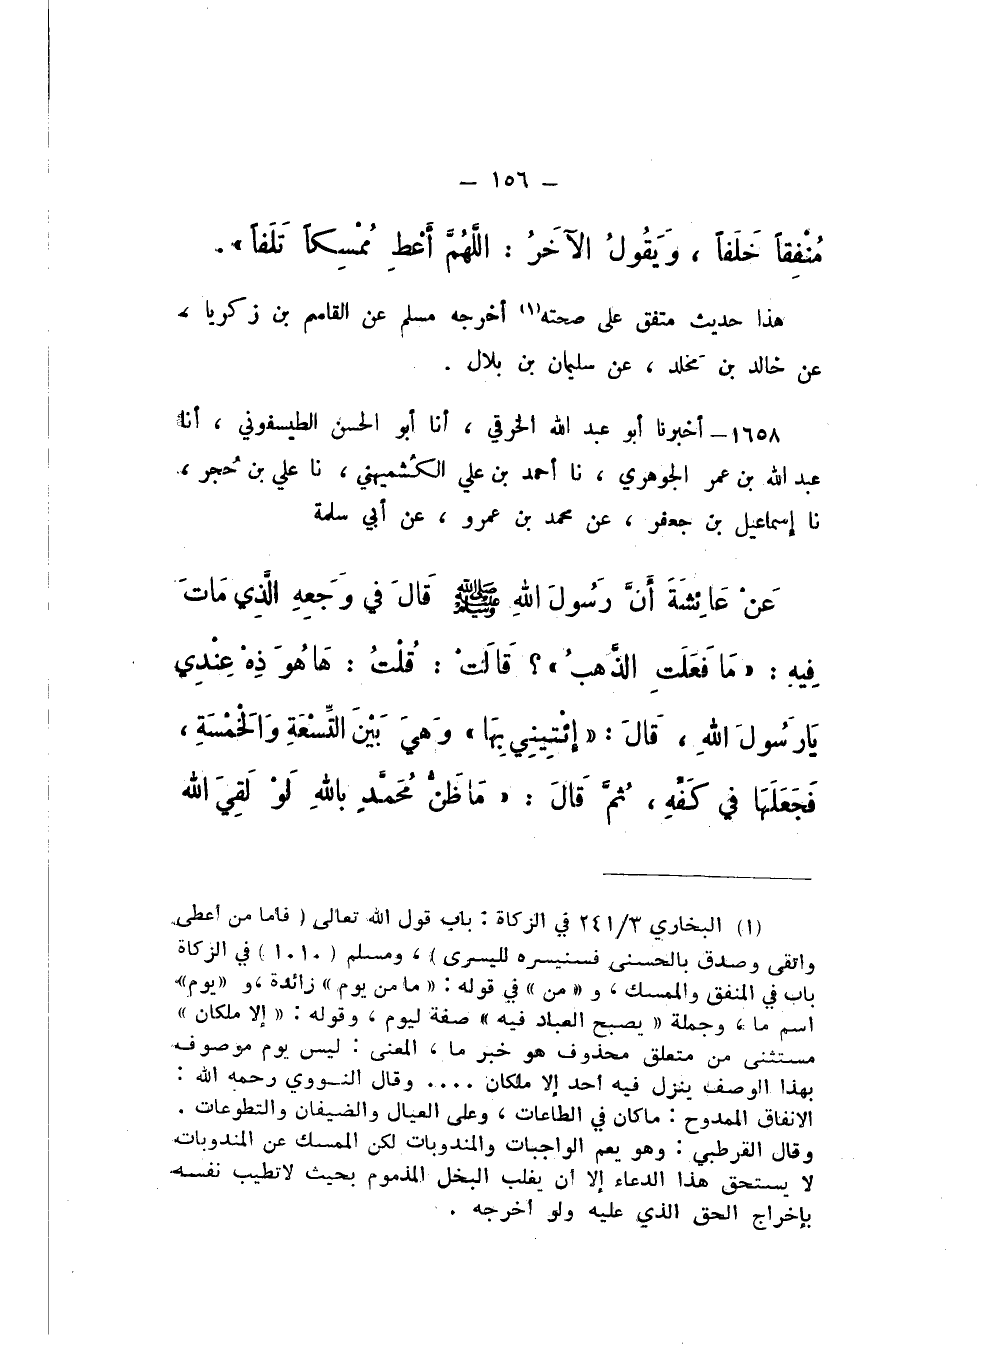 – ١٥٦ –
مُنْفِقاً خَلَفاً ، وَيَقُولُ الآخَرُ : اللَّهُمَّ أَعْطِ مُمْسِكاً تَلَفاً » .
هذا حديث متفق على صحته(١) أخرجه مسلم عن القاسم بن زكريا ،
عن خالد بن مَخلد ، عن سليمان بن بلال .
١٦٥٨ – أخبرنا أبو عبد الله الخرقي ، أنا أبو الحسن الطيسفوني ، أنا
عبد الله بن عمر الجوهري ، نا أحمد بن علي الكُشميهني ، نا علي بن حُجر ،
نا إسماعيل بن جعفر ، عن محمد بن عمرو ، عن أبي سلمة
عَنْ عَائِشَةَ أَنَّ رَسُولَ اللهِ ﷺ قَالَ في وَجَعِهِ الَّذِي مَاتَ
فِيهِ : « مَا فَعَلَتِ الذَّهبُ » ؟ قَالَتْ : قُلْتُ : هَا هُوَ ذِهْ عِنْدِي
يَا رَسُولَ اللهِ ، قَالَ : « إِئْتِينِي بِهَا » وَهِيَ بَيْنَ التِّسْعَةِ وَالْخَمْسَةِ ،
فَجَعَلَهَا في كَفِّهِ ، ثُمَّ قَالَ : « مَا ظَنُّ مُحَمَّدٍ بِاللهِ لَوْ لَقِيَ الله
(١) البخاري ٢٤١/٣ في الزكاة : باب قول الله تعالى ( فأما من أعطى
واتقى وصدق بالحسنى فسنيسره لليسرى ) ، ومسلم ( ١٠١٠ ) في الزكاة
باب في المنفق والممسك ، و « من » في قوله : « ما من يوم » زائدة ، و « يوم »
اسم ما ، وجملة « يصبح العباد فيه » صفة ليوم ، وقوله : « إلا ملكان »
مستثنى من متعلق محذوف هو خبر ما ، المعنى : ليس يوم موصوف
بهذا الوصف ينزل فيه أحد إلا ملكان .... وقال النووي رحمه الله :
الانفاق الممدوح : ماكان في الطاعات ، وعلى العيال والضيفان والتطوعات .
وقال القرطبي : وهو يعم الواجبات والمندوبات لكن الممسك عن المندوبات
لا يستحق هذا الدعاء إلا أن يغلب البخل المذموم بحيث لاتطيب نفسه
بإخراج الحق الذي عليه ولو أخرجه .